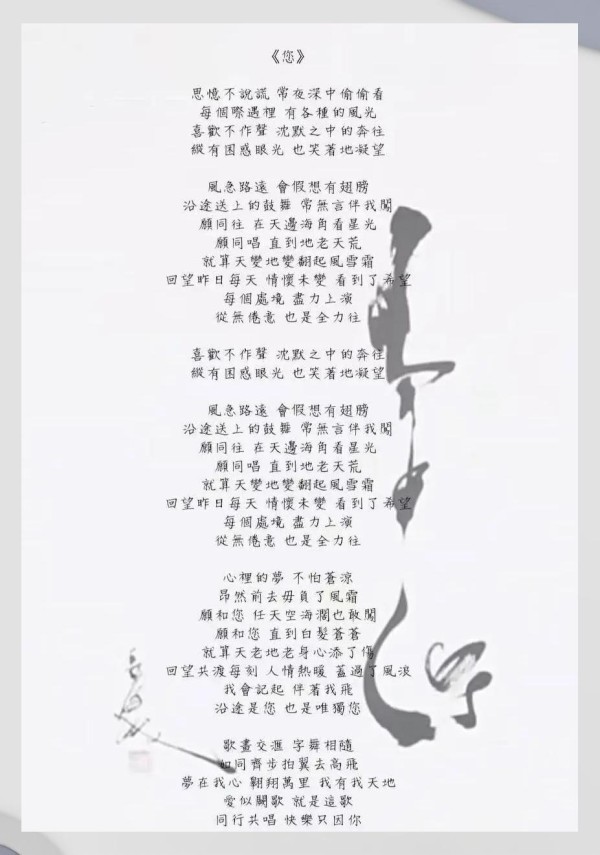 《您》
思憶不說謊 常夜深中偷偷看
每個際遇裡 有各種的風光
喜歡不作聲 沈默之中的奔往
縱有困惑眼光 也笑著地凝望
風急路遠 會假想有翅膀
沿途送上的鼓舞 常無言伴我闖
願同往 在天邊海角看星光
願同唱 直到地老天荒
就算天變地變翻起風雪霜
回望昨日每天 情懷未變 看到了希望
每個處境 盡力上演
從無倦意 也是全力往
喜歡不作聲 沈默之中的奔往
縱有困惑眼光 也笑著地凝望
風急路遠 會假想有翅膀
沿途送上的鼓舞 常無言伴我闖
願同往 在天邊海角看星光
願同唱 直到地老天荒
就算天變地變翻起風雪霜
回望昨日每天 情懷未變 看到了希望
每個處境 盡力上演
從無倦意 也是全力往
心裡的夢 不怕蒼涼
昂然前去毋負了風霜
願和您 任天空海濶也敢闖
願和您 直到白髮蒼蒼
就算天老地老身心添了傷
回望共渡每刻 人情熱暖 蓋過了風浪
我會記起 伴著我飛
沿途是您 也是唯獨您
歌畫交滙 字舞相隨
如同齊步拍翼去高飛
夢在我心 翱翔萬里 我有我天地
愛似闋歌 就是這歌
同行共唱 快樂只因你